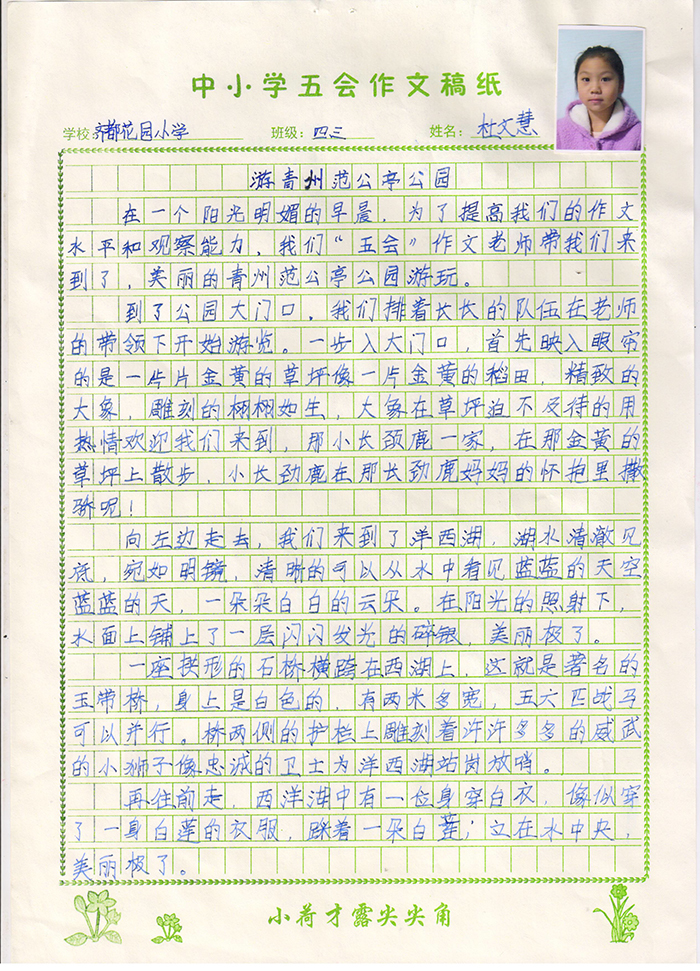 中小学五会作文稿纸
学校:齐都花园小学 班级:四三 姓名:杜文慧
游青州范公亭公园
在一个阳光明媚的早晨，为了提高我们的作文
水平和观察能力，我们“五会”作文老师带我们来
到了，美丽的青州范公亭公园游玩。
到了公园大门口，我们排着长长的队伍在老师
的带领下开始游览。一步入大门口，首先映入眼帘
的是一片片金黄的草坪像一片金黄的稻田，精致的
大象，雕刻的栩栩如生，大象在草坪迫不及待的用
热情欢迎我们来到，那小长颈鹿一家，在那金黄的
草坪上散步，小长劲鹿在那长劲鹿妈妈的怀抱里撒
骄呢！
向左边走去，我们来到了洋西湖，湖水清澈见
底，宛如明镜，清晰的可以从水中看见蓝蓝的天空
蓝蓝的天，一朵朵白白的云朵。在阳光的照射下，
水面上铺上了一层闪闪发光的碎银，美丽极了。
一座拱形的石桥横跨在西湖上，这就是著名的
玉带桥，身上是白色的，有两米多宽，五六匹战马
可以并行。桥两侧的护栏上雕刻着许许多多的威武
的小狮子像忠诚的卫士为洋西湖站岗放哨。
再往前走，西洋湖中有一位身穿白衣，像似穿
了一身白莲的衣服，踩着一朵白莲；立在水中央，
美丽极了。
小荷才露尖尖角